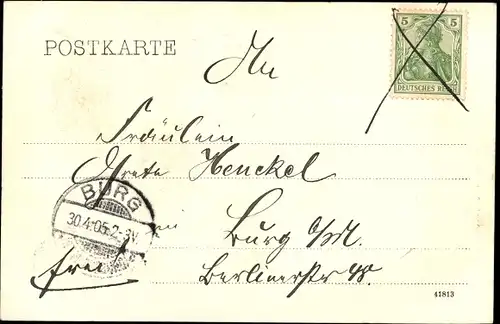 POSTKARTE
5 5
DEUTSCHES REICH
An
Fräulein
Grete Henckel
BURG
30.4.05.2-3N
in
Burg b/M.
frei!
Berlinerstr.
41813